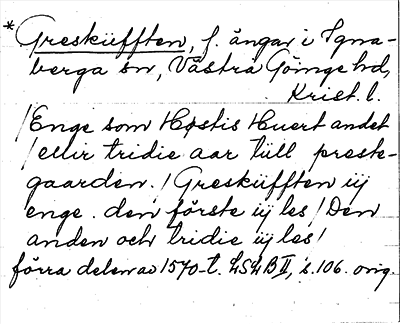 * Gresküfften, f. ängar i Igna-
berga sn, Västra Göinge hd,
Krist. l.
/Enge som Høstis Huert andet
/eller tridie aar tüll preste-
gaarden./Gresküfften üj
enge. den förste üj les/Den
anden och tridie üj les/
förra delen av 1570-t. LSLB II, s. 106. orig.